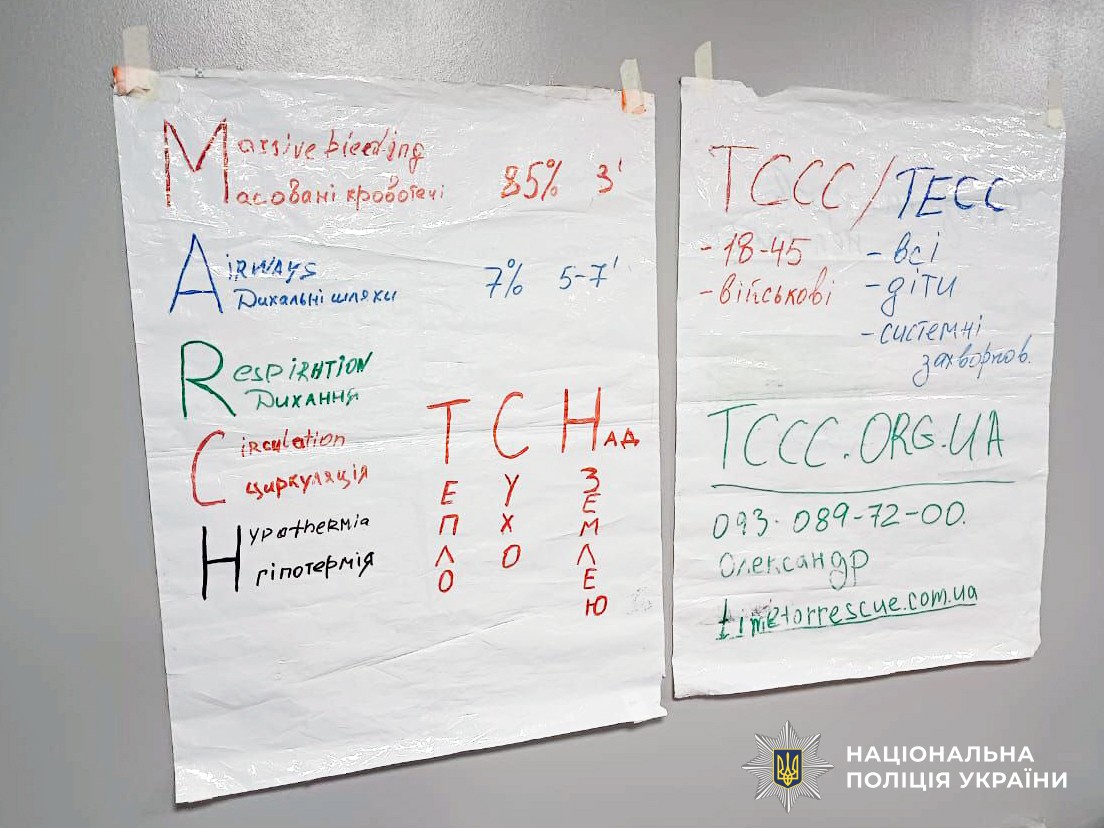 Massive bleeding
Масовані кровотечі 85% 3'
Airways
Дихальні шляхи 7% 5-7'
Respiration
Дихання
Circulation
циркуляція
Hypothermia
гіпотермія
Тепло
Сухо
Над
Землею
TCCC/TECC
- 18-45
- військові
- всі
- діти
- системні
захворюв.
TCCC.ORG.UA
093-089-72-00.
Олександр
timetorrescue.com.ua
НАЦІОНАЛЬНА
ПОЛІЦІЯ УКРАЇНИ